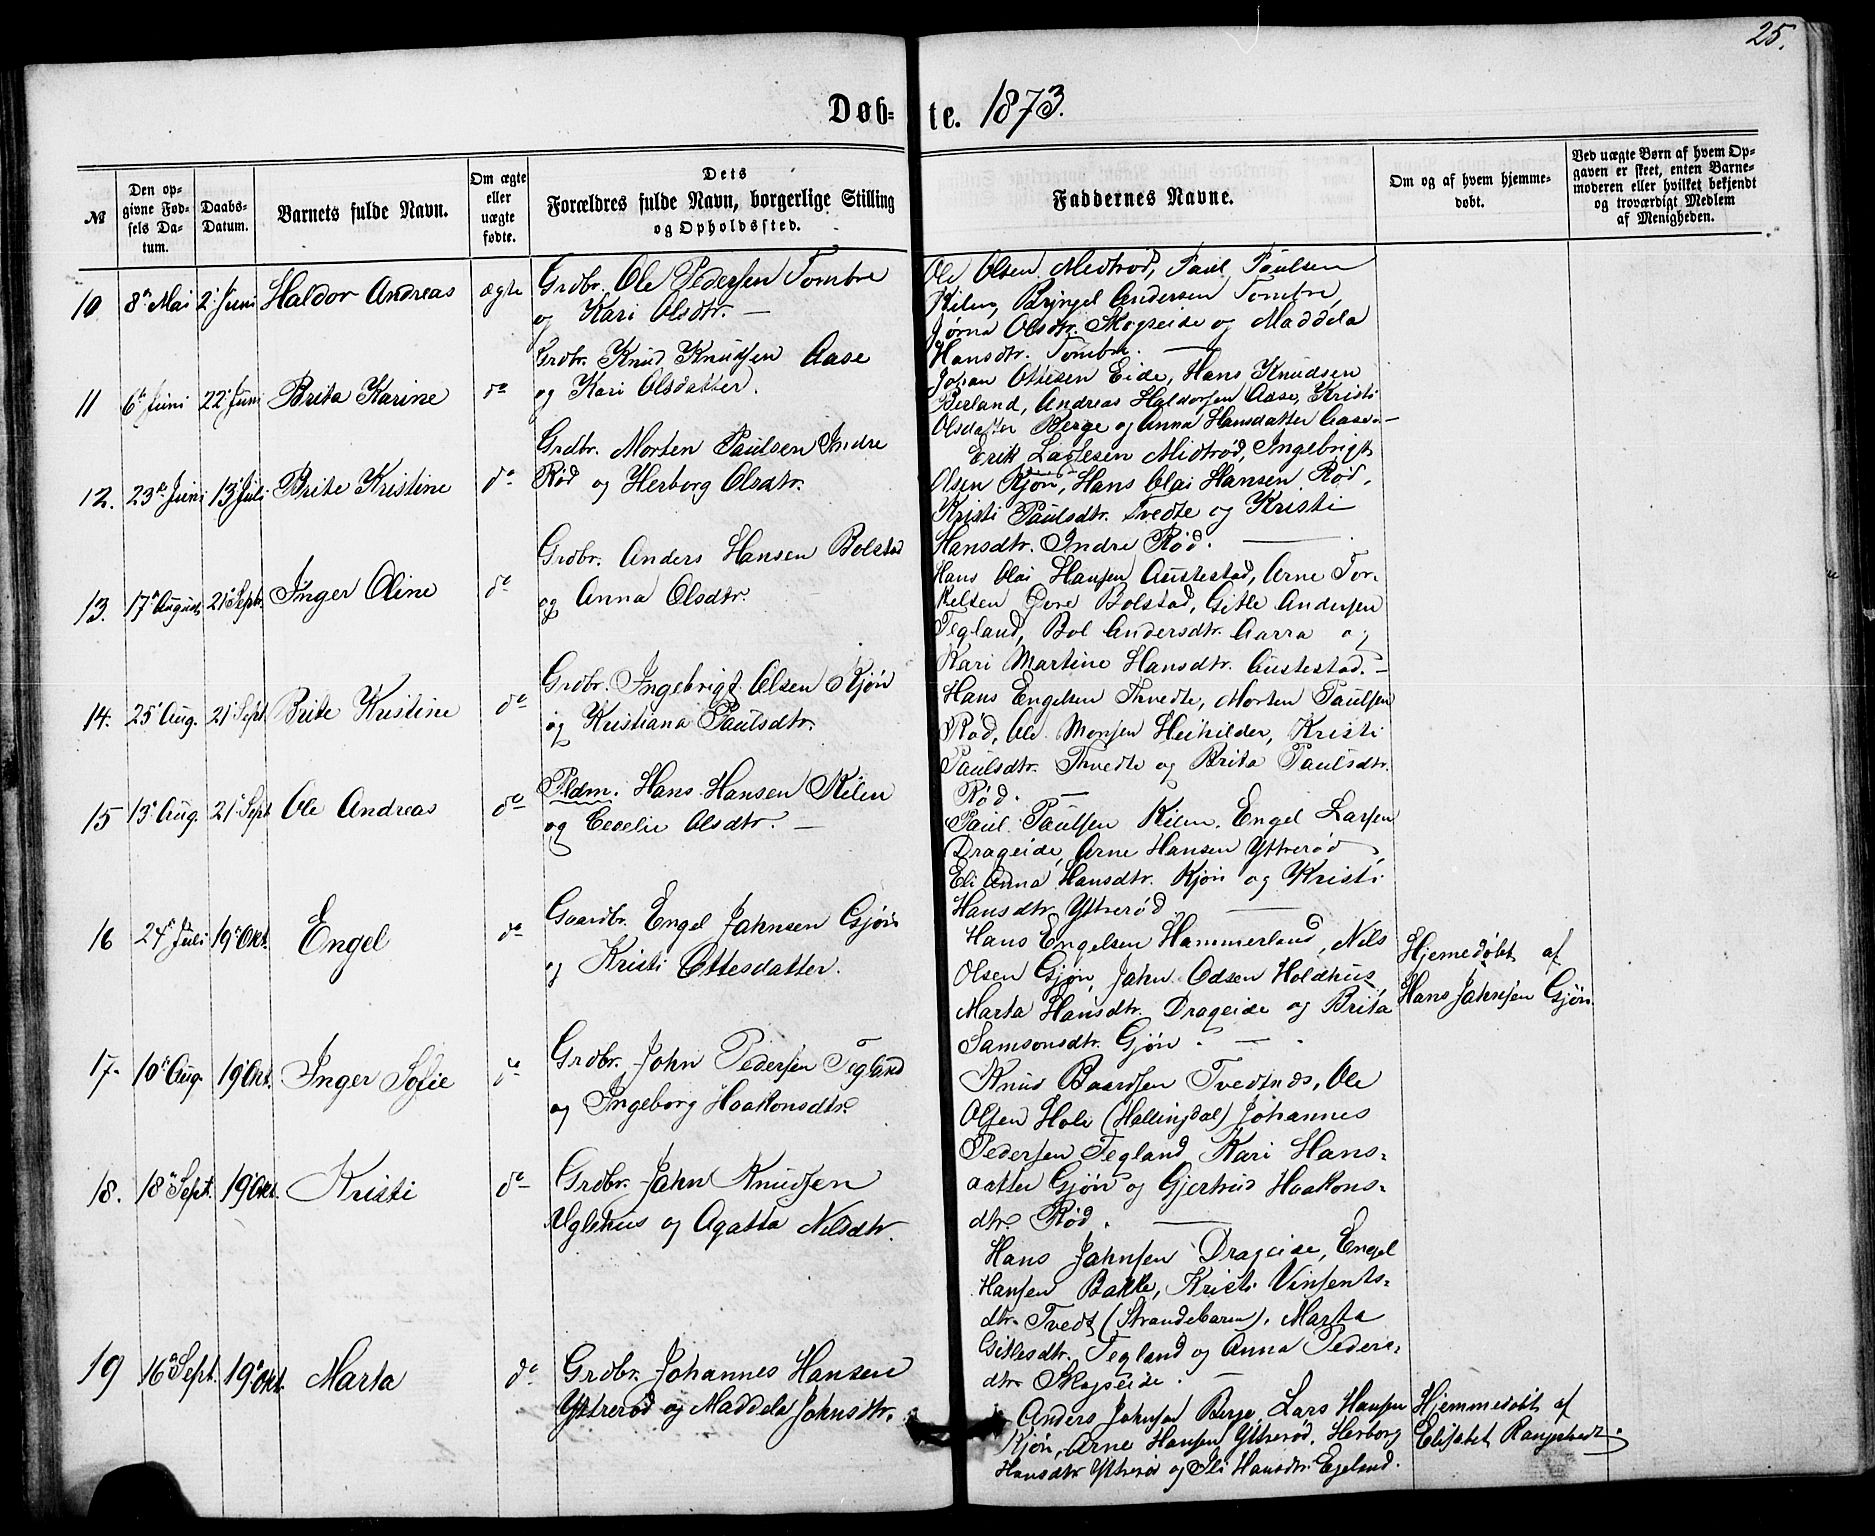 25.
Døb- te. 1873.
№
Den opgivne Fødsels Datum.
Daabs-Datum.
Barnets fulde Navn.
Om ægte eller uægte fødte.
Dets Forældres fulde Navn, borgerlige Stilling og Opholdssted.
Faddernes Navne.
Om og af hvem hjemmedøbt.
Ved uægte Børn af hvem Opgaven er skeet, enten Barnemoderen eller hvilket bekjendt og troværdigt Medlem af Menigheden.
10 8de Mai 2 Juni Haldor Andreas ægte
Grdbr. Ole Pedersen Tombre
og Kari Olsdtr. —
Ole Olsen Midtrød, Paul Paulsen
Kilen, Bryngel Andersen Tombre,
Jørna Olsdtr. Skogseide og Maddela
Hansdtr. Tombre. —
11 6te Juni 22 Juni Brita Karine do
Grdbr. Knud Knudsen Aase
og Kari Olsdatter.
Johan Ottesen Eide, Hans Knudsen
Berland, Andreas Haldorsen Aase, Kristi
Olsdatter Berge og Anna Hansdatter Aase. —
12. 23de Juni 13 Juli Brite Kristine do
Grdbr. Morten Paulsen Indre
Rød og Herborg Olsdtr.
Erik Larsesen Midtrød, Ingebrigt
Olsen Kjøn, Hans Olai Hansen Rød,
Kristi Paulsdtr. Tvedte og Kristi
Hansdtr. Indre Rød. —
13. 17de August 21 Septb. Inger Oline do
Grdbr. Anders Hansen Bolstad
og Anna Olsdtr.
Hans Olai Hansen Austestad, Arne Tor-
kelsen Øvre Bolstad, Gitle Andersen
Tegland, Bol Andersdtr. Aarra og
Kari Martine Hansdtr. Austestad. —
14. 25 Aug. 21 Sept. Brite Kristine do
Grdbr. Ingebrigt Olsen Kjøn
og Kristiana Paulsdtr.
Hans Engelsen Thvedte, Morten Paulsen
Rød, Ole Monsen Heihilder, Kristi
Paulsdtr. Thvedte og Brita Paulsdtr.
Rød. —
15 13 Aug. 21 Sept. Ole Andreas do
Pldm. Hans Hansen Kilen
og Cecelie Olsdtr. —
Paul Paulsen Kilen, Engel Larsen
Drageide, Arne Hansen Yttrerød,
Eli Anna Hansdtr. Kjøn og Kristi
Hansdtr. Yttrerød —
16 24de Juli 19 Okt. Engel do
Gaardbr. Engel Jahnsen Gjøn
og Kristi Ottesdatter.
Hans Engelsen Hammerland, Nils
Olsen Gjøn, Jahn Odsen Holdhus,
Marta Hansdtr. Drageide og Brita
Samsonsdtr. Gjøn. —
Hjemedøbt af
Hans Jahnsen Gjøn.
17. 10de Aug. 19 Okt. Inger Sofie do
Grdbr. John Pedersen Tegland
og Ingeborg Haakonsdtr.
Knud Baardsen Tvedtnes, Ole
Olsen Hole (Hallingdal) Johannes
Pedersen Tegland, Kari Hans-
datter Gjøn og Gjertrud Haakons-
dtr. Rød. —
18. 18de Sept. 19 Okt. Kristi do
Grdbr. Jahn Knudsen
Uglehus og Agatta Nilsdtr.
Hans Jahnsen Drageide, Engel
Hansen Bakke, Kristi Vinsents-
dtr. Tvedt (Strandebarm), Marta
Gitlesdtr. Tegland og Anna Peders-
dtr. Skogseide. —
19 16de Sept. 19 Okt. Marta do
Grdbr. Johannes Hansen
Yttrerød og Maddela Johnsdtr.
Anders Johnsen Berge, Lars Hansen
Kjøn, Arne Hansen Yttrerød, Herborg
Hansdtr. Yttrerød og Eli Hansdtr. Egeland.
Hjemmedøbt af
Elisabet